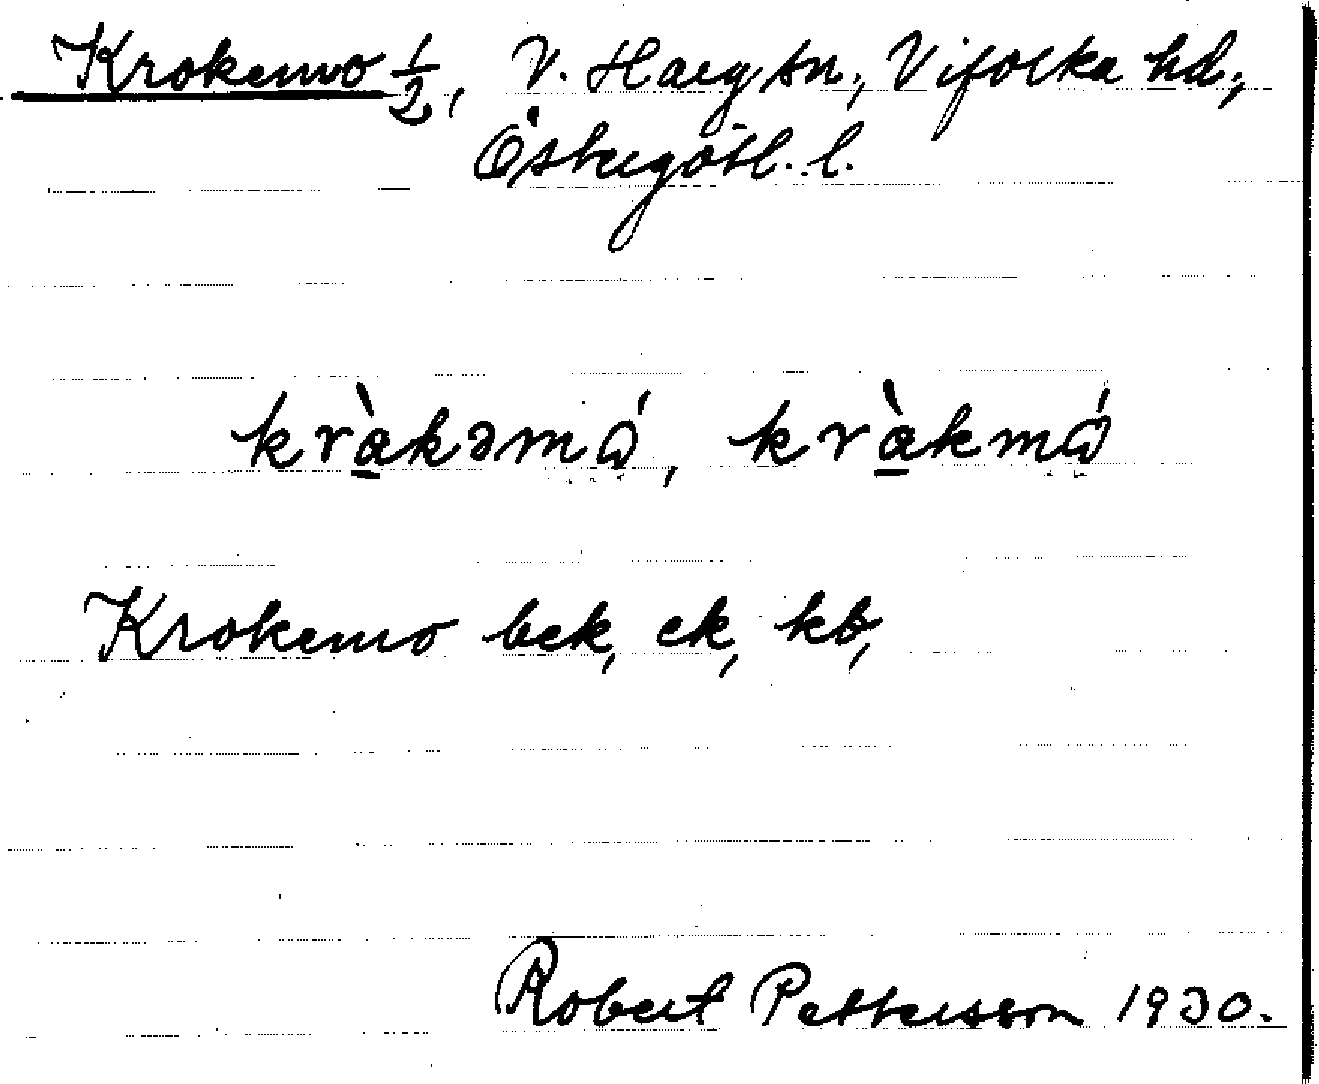 Krokemo 1/2, V. Harg sn., Vifolka hd.,
Östergötl. l.
kràkəmǻ, kràkmǻ
Krokemo bek, ek, kb,
Robert Pettersson 1930.